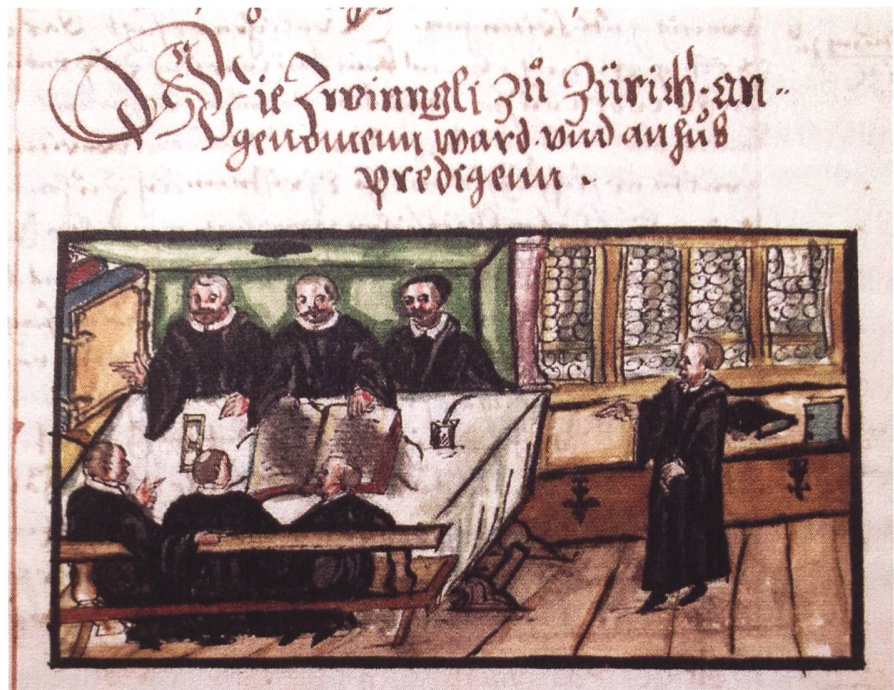 Wie Zwinngli zů Zürich. an-
genomenn ward. vnd anhůb
predigenn.